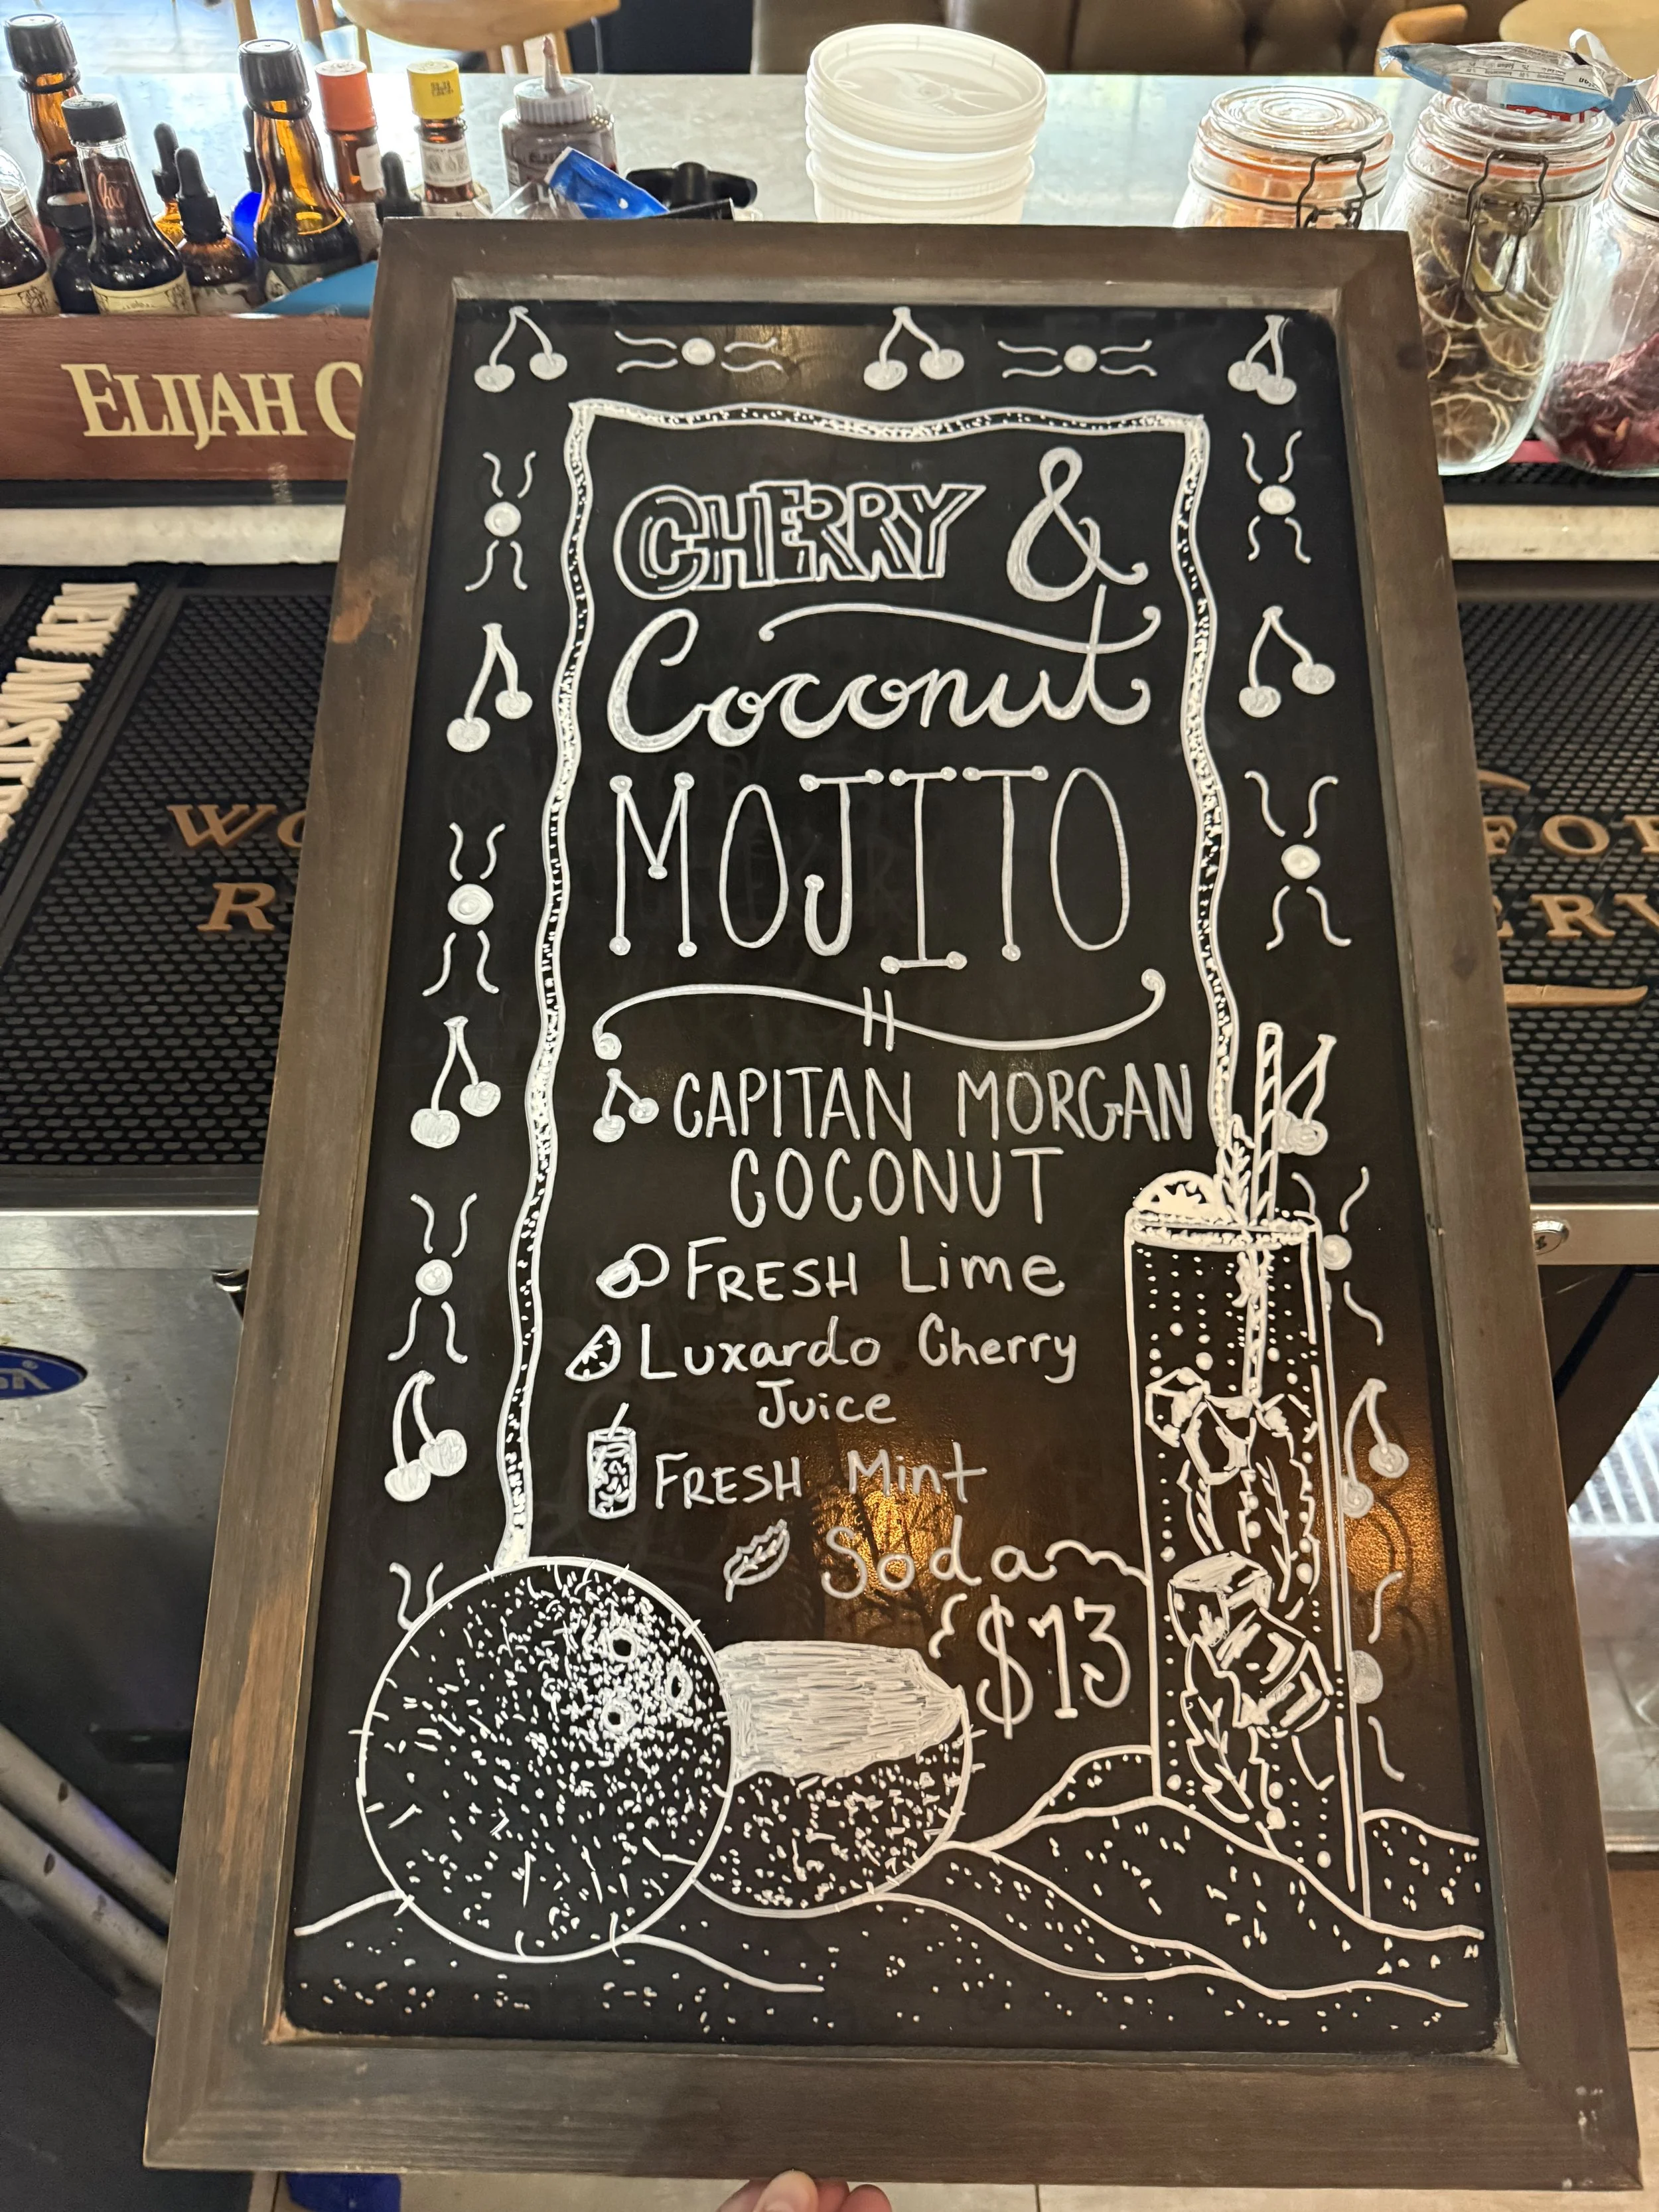 ELIJAH C
CHERRY &
Coconut
MOJITO
CAPITAN MORGAN
COCONUT
FRESH Lime
Luxardo Cherry
Juice
FRESH Mint
Soda
$13